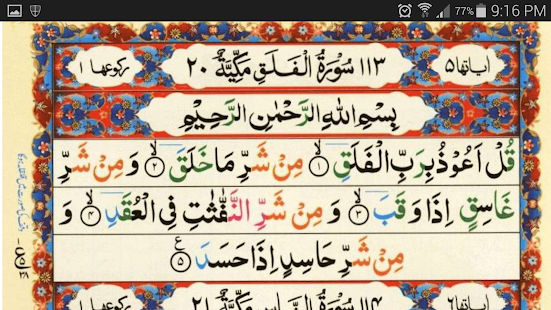 77% 9:16 PM
اٰیاتها ۵ ۱۱۳ سُوْرَةُ الْفَلَقِ مَكِّیَّةٌ ۲۰ ركوعها ۱
بِسْمِ اللّٰهِ الرَّحْمٰنِ الرَّحِیْمِ
قُلْ اَعُوْذُ بِرَبِّ الْفَلَقِ ۙ﴿۱﴾ مِنْ شَرِّ مَا خَلَقَ ۙ﴿۲﴾ وَ مِنْ شَرِّ
غَاسِقٍ اِذَا وَقَبَ ۙ﴿۳﴾ وَ مِنْ شَرِّ النَّفّٰثٰتِ فِی الْعُقَدِ ۙ﴿۴﴾ وَ
مِنْ شَرِّ حَاسِدٍ اِذَا حَسَدَ ﴿۵﴾ ع
اٰیاتها ۶ ۱۱۴ سُوْرَةُ النَّاسِ مَكِّیَّةٌ ۲۱ ركوعها ۱